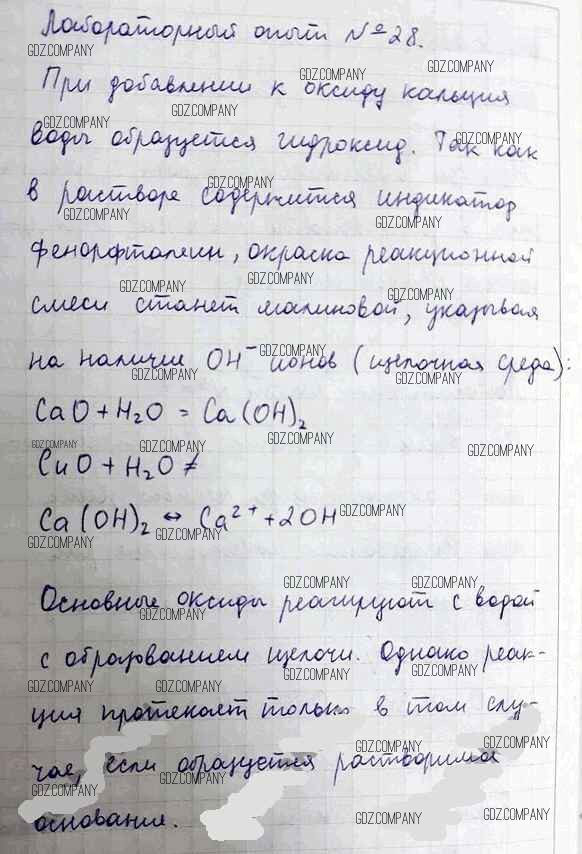 Лабораторный опыт №28.
При добавлении к оксиду кальция
воды образуется гидроксид. Так как
в растворе содержится индикатор
фенолфталеин, окраска реакционной
смеси станет малиновой, указывая
на наличие OH⁻ ионов (щелочная среда):
CaO + H₂O = Ca(OH)₂
CuO + H₂O ≠
Ca(OH)₂ ↔ Ca²⁺ + 2OH
Основные оксиды реагируют с водой
с образованием щелочи. Однако реак-
ция протекает только в том слу-
чае, если образуется растворимое
основание.
GDZ.COMPANY